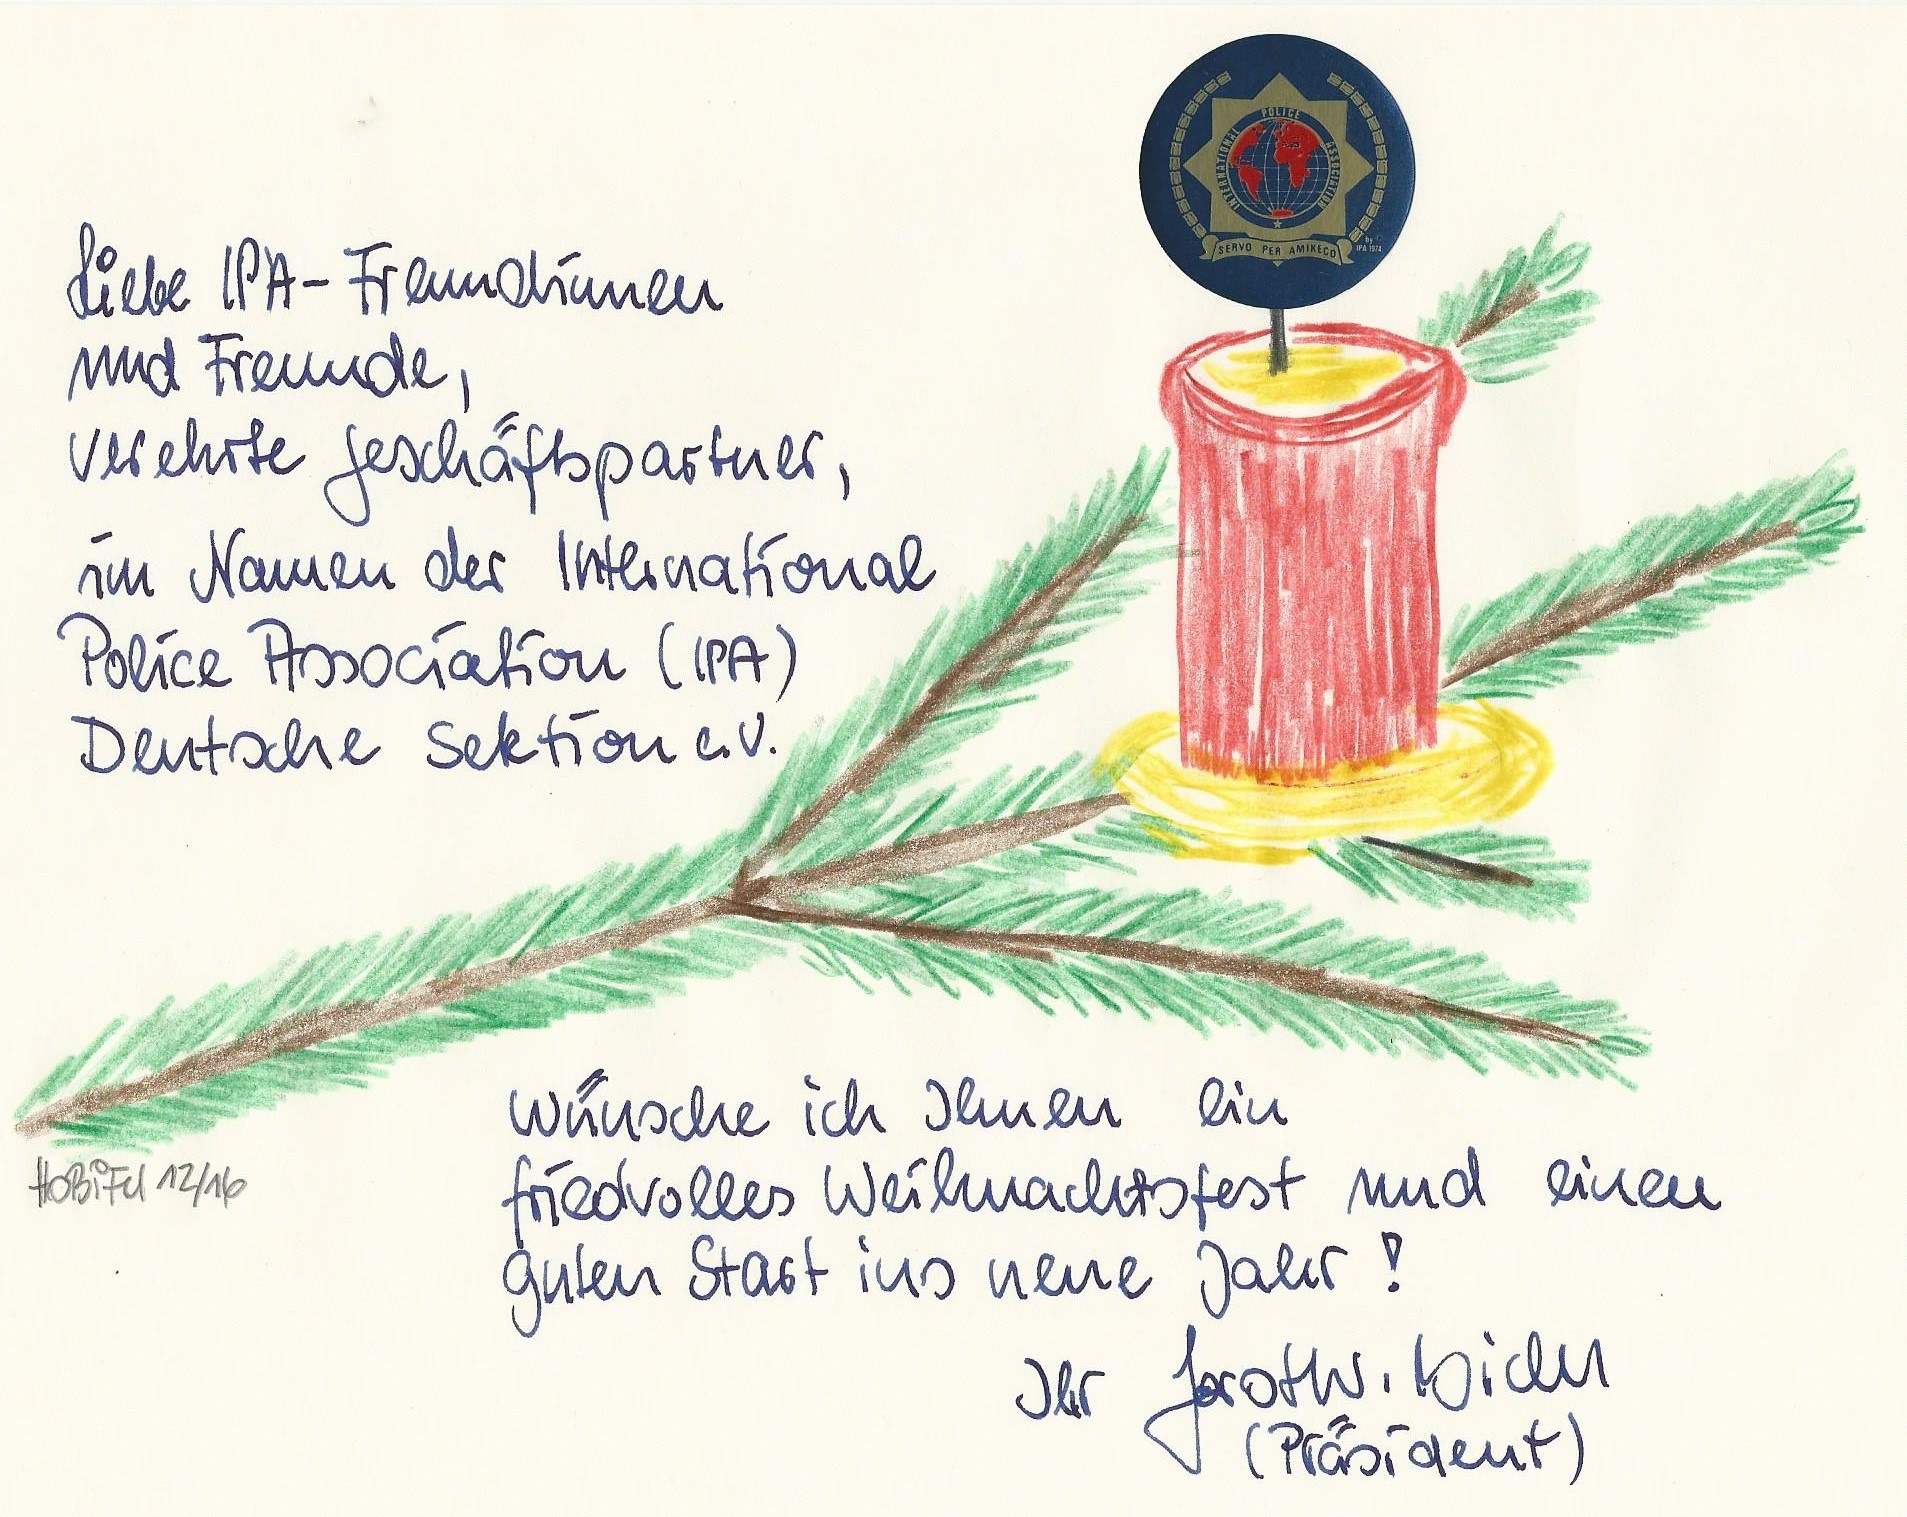 INTERNATIONAL POLICE ASSOCIATION
SERVO PER AMIKECO
by ©
IPA 1974
Liebe IPA-Freundinnen
und Freunde,
verehrte Geschäftspartner,
im Namen der International
Police Association (IPA)
Deutsche Sektion e.V.
wünsche ich Ihnen ein
friedvolles Weihnachtsfest und einen
guten Start ins neue Jahr!
Ihr Horst W. Bichl
(Präsident)
HoBiFd 12/16